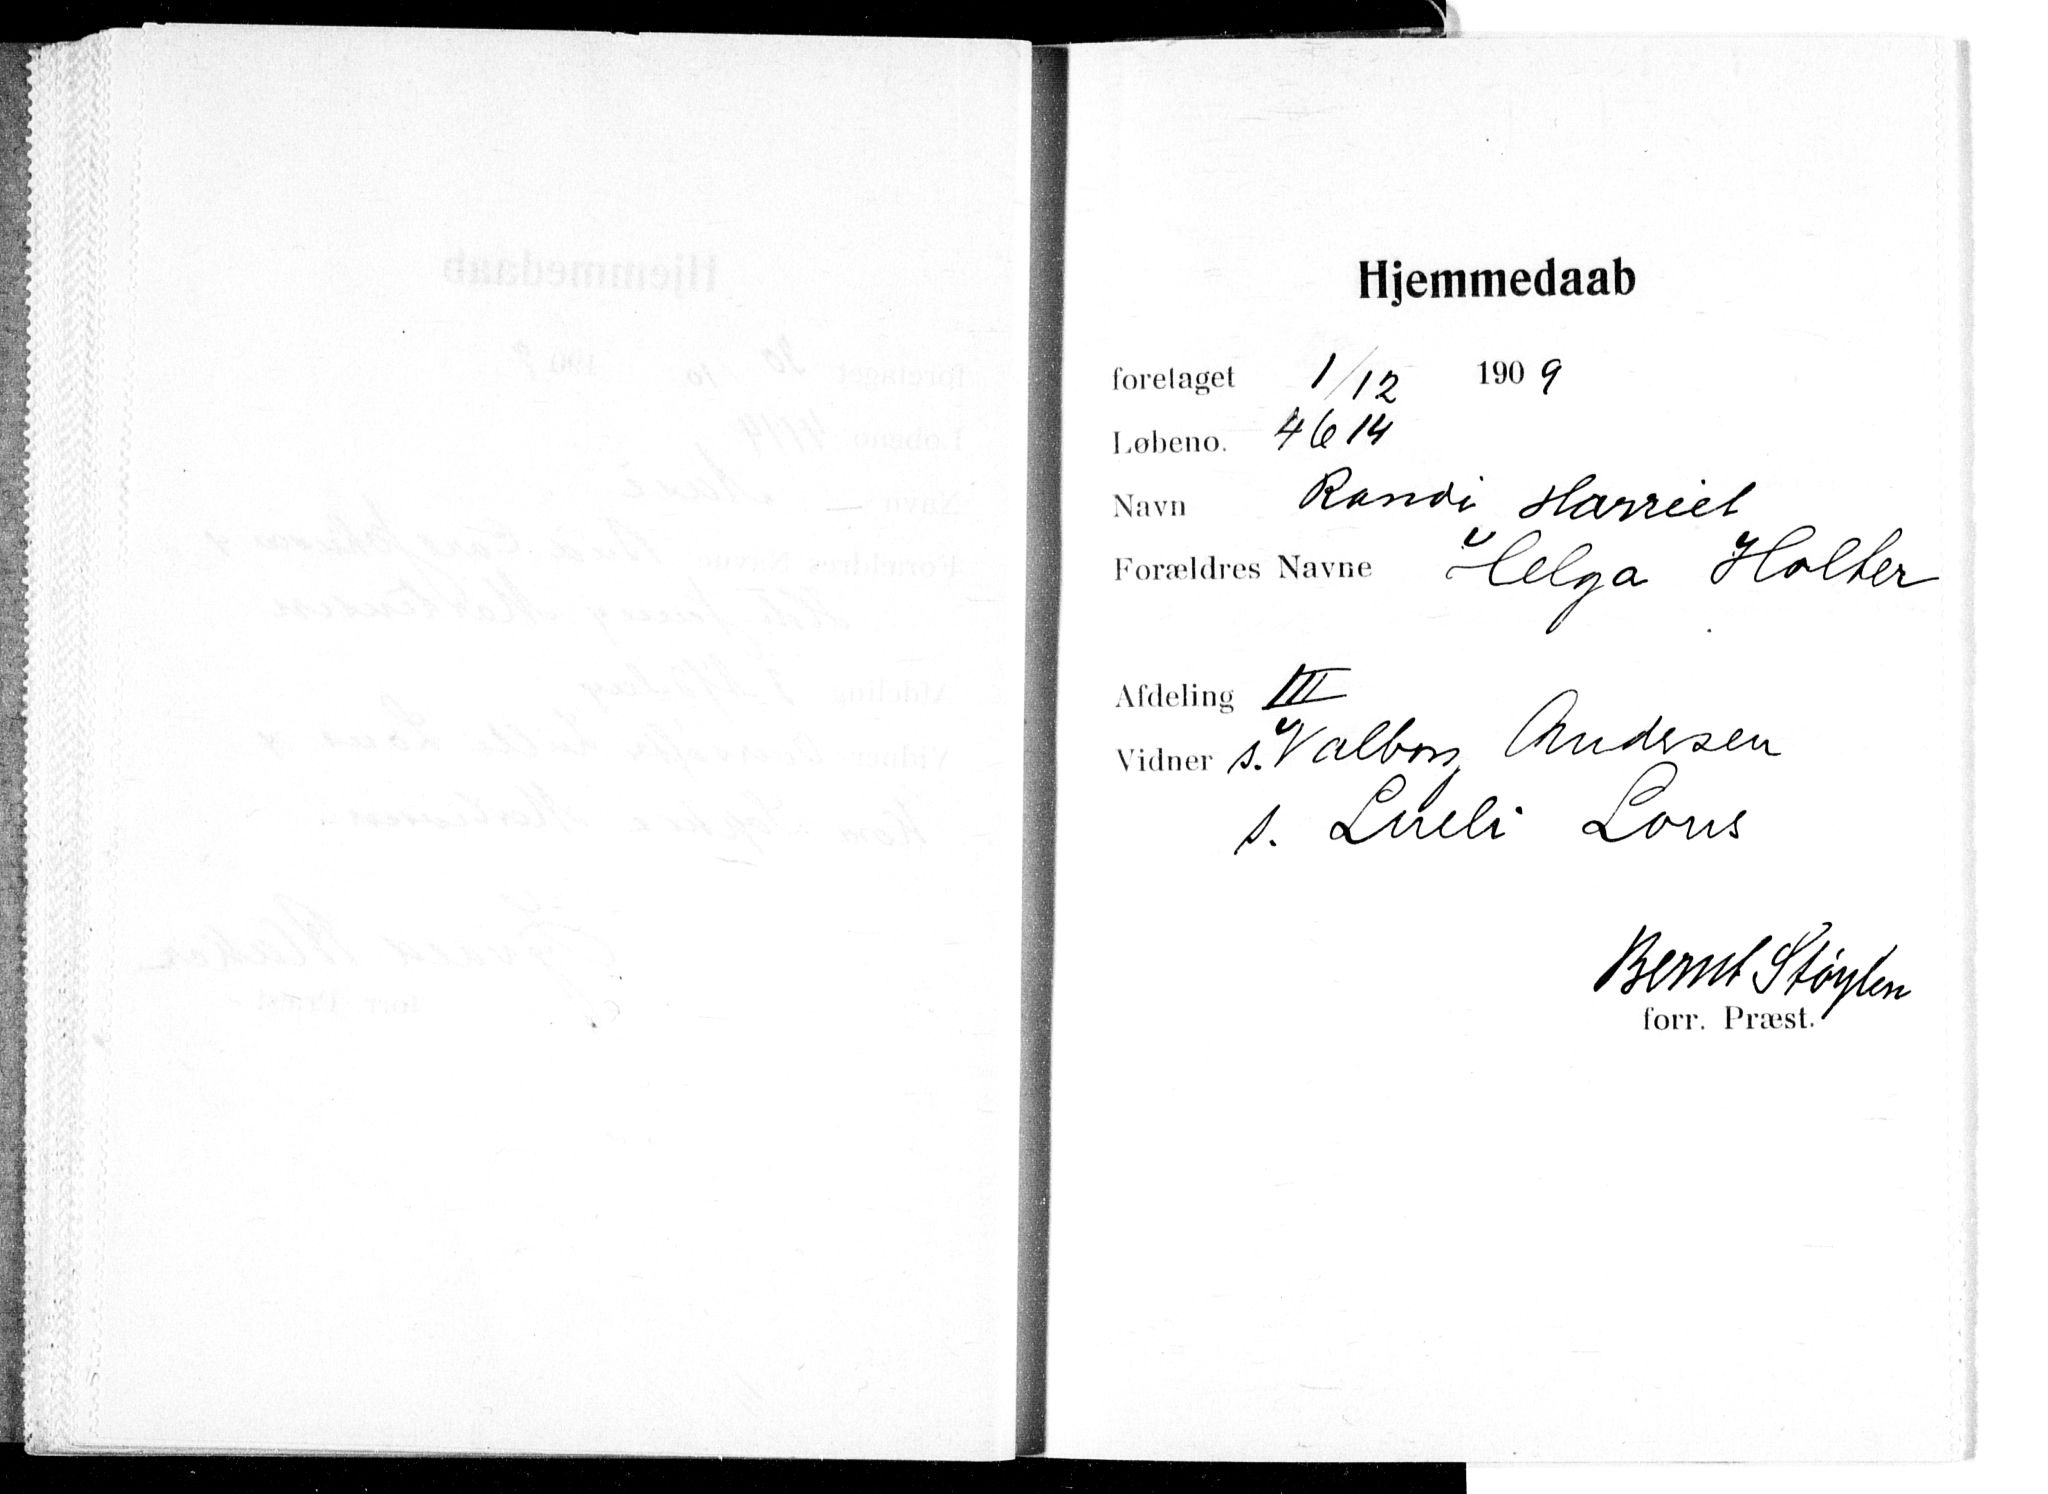 Hjemmedaab
foretaget 1/12 1909
Løbeno. 4614
Navn Randi Harriet
Forældres Navne Helga Holter
Afdeling III
Vidner s. Valborg Andersen
s. Lucli Lous
Bernt Støylen
forr. Præst.